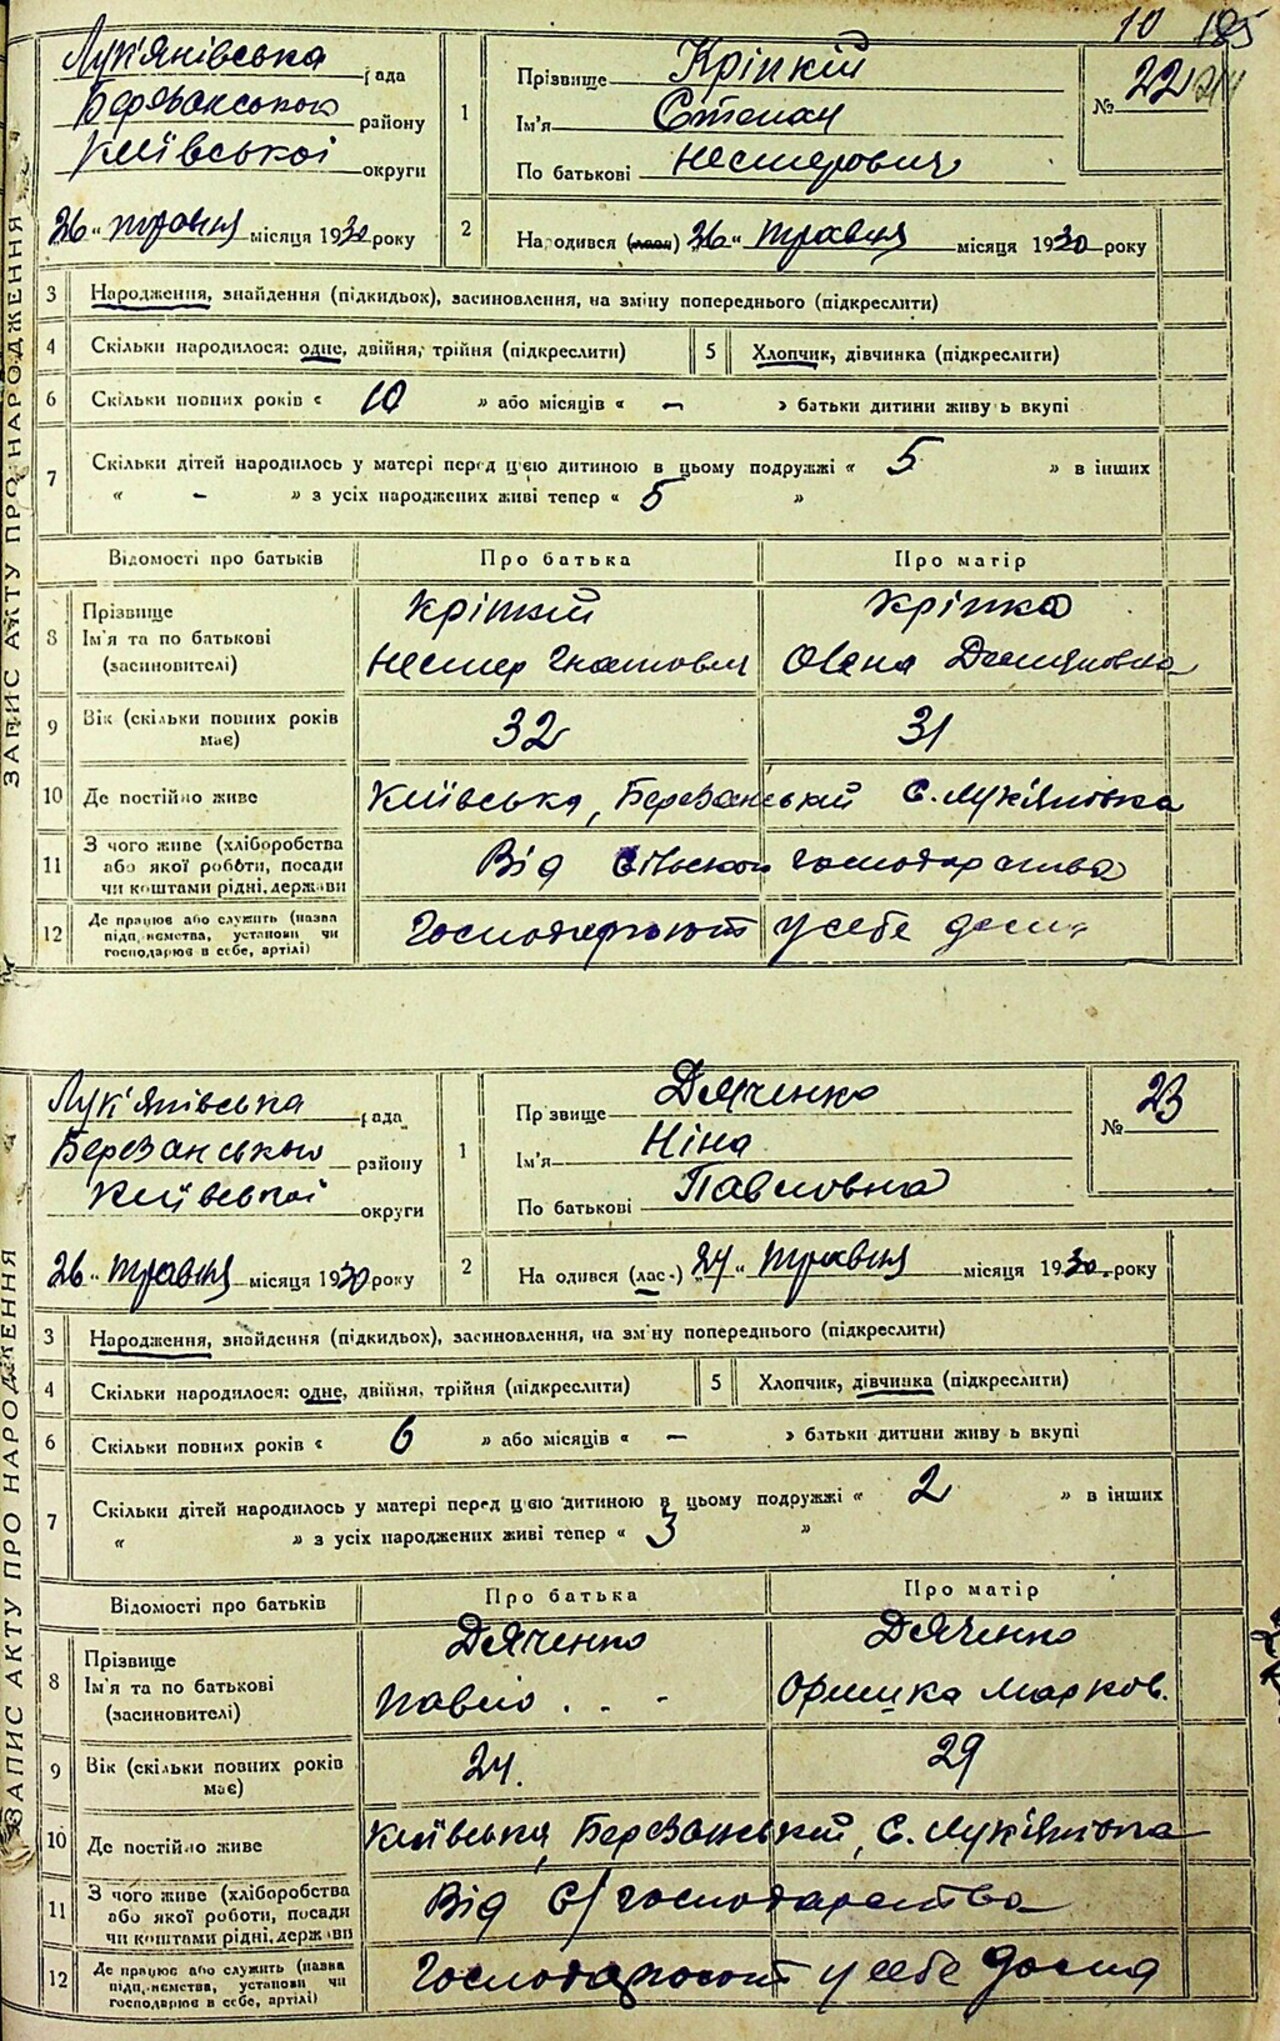 10 185
ЗАПИС АКТУ ПРО НАРОДЖЕННЯ
Лук'янівська рада
Березанського району
Київської округи
26 „ травня місяця 1930 року
1
Прізвище Кріпкій
Ім'я Степан
По батькові Несторович
№ 22
2
Народився (лась) 26 „ травня місяця 1930 року
3 Народження, знайдення (підкидьох), засиновлення, на зміну попереднього (підкреслити)
4 Скільки народилося: одне, двійня, трійня (підкреслити) 5 Хлопчик, дівчинка (підкреслити)
6 Скільки повних років « 10 » або місяців « – » батьки дитини живуть вкупі
7 Скільки дітей народилось у матері перед цією дитиною в цьому подружжі « 5 » в інших
« - » з усіх народжених живі тепер « 5 »
Відомості про батьків Про батька Про матір
8 Прізвище
Ім'я та по батькові
(засиновителі)
Кріпкій Кріпка
Нестер Гнатович Овена Демяновна
9 Вік (скільки повних років має) 32 31
10 Де постійно живе Київська, Березанський с. Лук'янівка
11 З чого живе (хліборобства
або якої роботи, посади
чи коштами рідні, держави
Від сільского господарства
12 Де працює або служить (назва
підприємства, установи чи
господарює в себе, артілі)
Господарюют у себе дома
ЗАПИС АКТУ ПРО НАРОДЖЕННЯ
Лук'янівська рада
Березанського району
Київської округи
26 „ травня місяця 1930 року
1
Прізвище Дяченко
Ім'я Ніна
По батькові Павловна
№ 23
2
Народився (лась) 24 „ травня місяця 1930 року
3 Народження, знайдення (підкидьох), засиновлення, на зміну попереднього (підкреслити)
4 Скільки народилося: одне, двійня, трійня (підкреслити) 5 Хлопчик, дівчинка (підкреслити)
6 Скільки повних років « 6 » або місяців « – » батьки дитини живуть вкупі
7 Скільки дітей народилось у матері перед цією дитиною в цьому подружжі « 2 » в інших
« » з усіх народжених живі тепер « 3 »
Відомості про батьків Про батька Про матір
8 Прізвище
Ім'я та по батькові
(засиновителі)
Дяченко Дяченко
Павло . . - Оришка Марков.
9 Вік (скільки повних років має) 24. 29
10 Де постійно живе Київська, Березанський, с. Лук'янівка
11 З чого живе (хліборобства
або якої роботи, посади
чи коштами рідні, держави
Від с/господарства
12 Де працює або служить (назва
підприємства, установи чи
господарює в себе, артілі)
Господарюют у себе дома